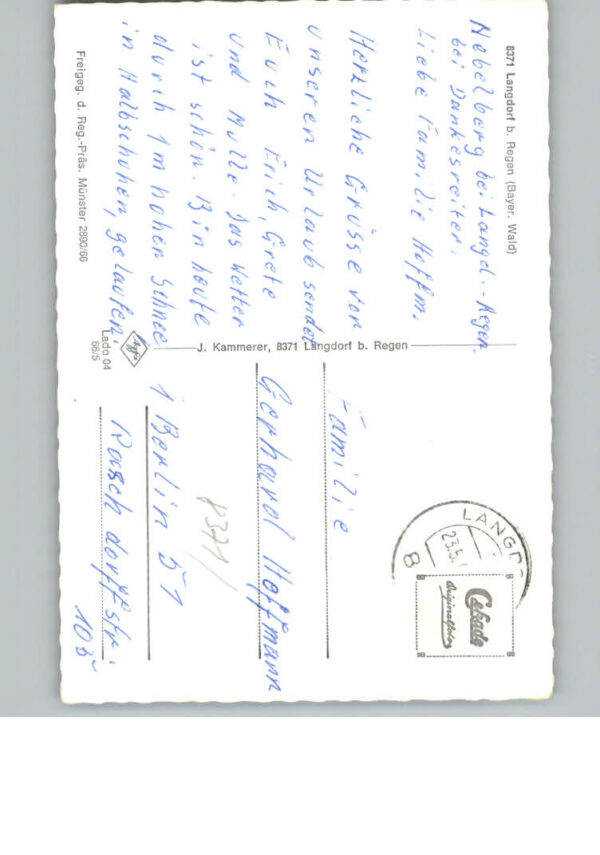 8371 Langdorf b. Regen (Bayer. Wald)
Nebelberg bei Langd.-Regen.
bei Dankesreiter.
Liebe Familie Hoffm.
Herzliche Grüsse von
unseren Urlaub senden
Euch Erich, Grete
und Mulle. Das Wetter
ist schön. Bin heute
durch 1m hohen Schnee
in Halbschuhen, gelaufen.
Freigeg. d. Reg.-Präs. Münster 2890/66
J. Kammerer, 8371 Langdorf b. Regen
Agfa
Lado 04
66/5
LANGDO
23.5.
8
Cekade
Originalfoto
Familie
Gerhard Hoffmann
8371/
1 Berlin 51
Raschdorffstr.